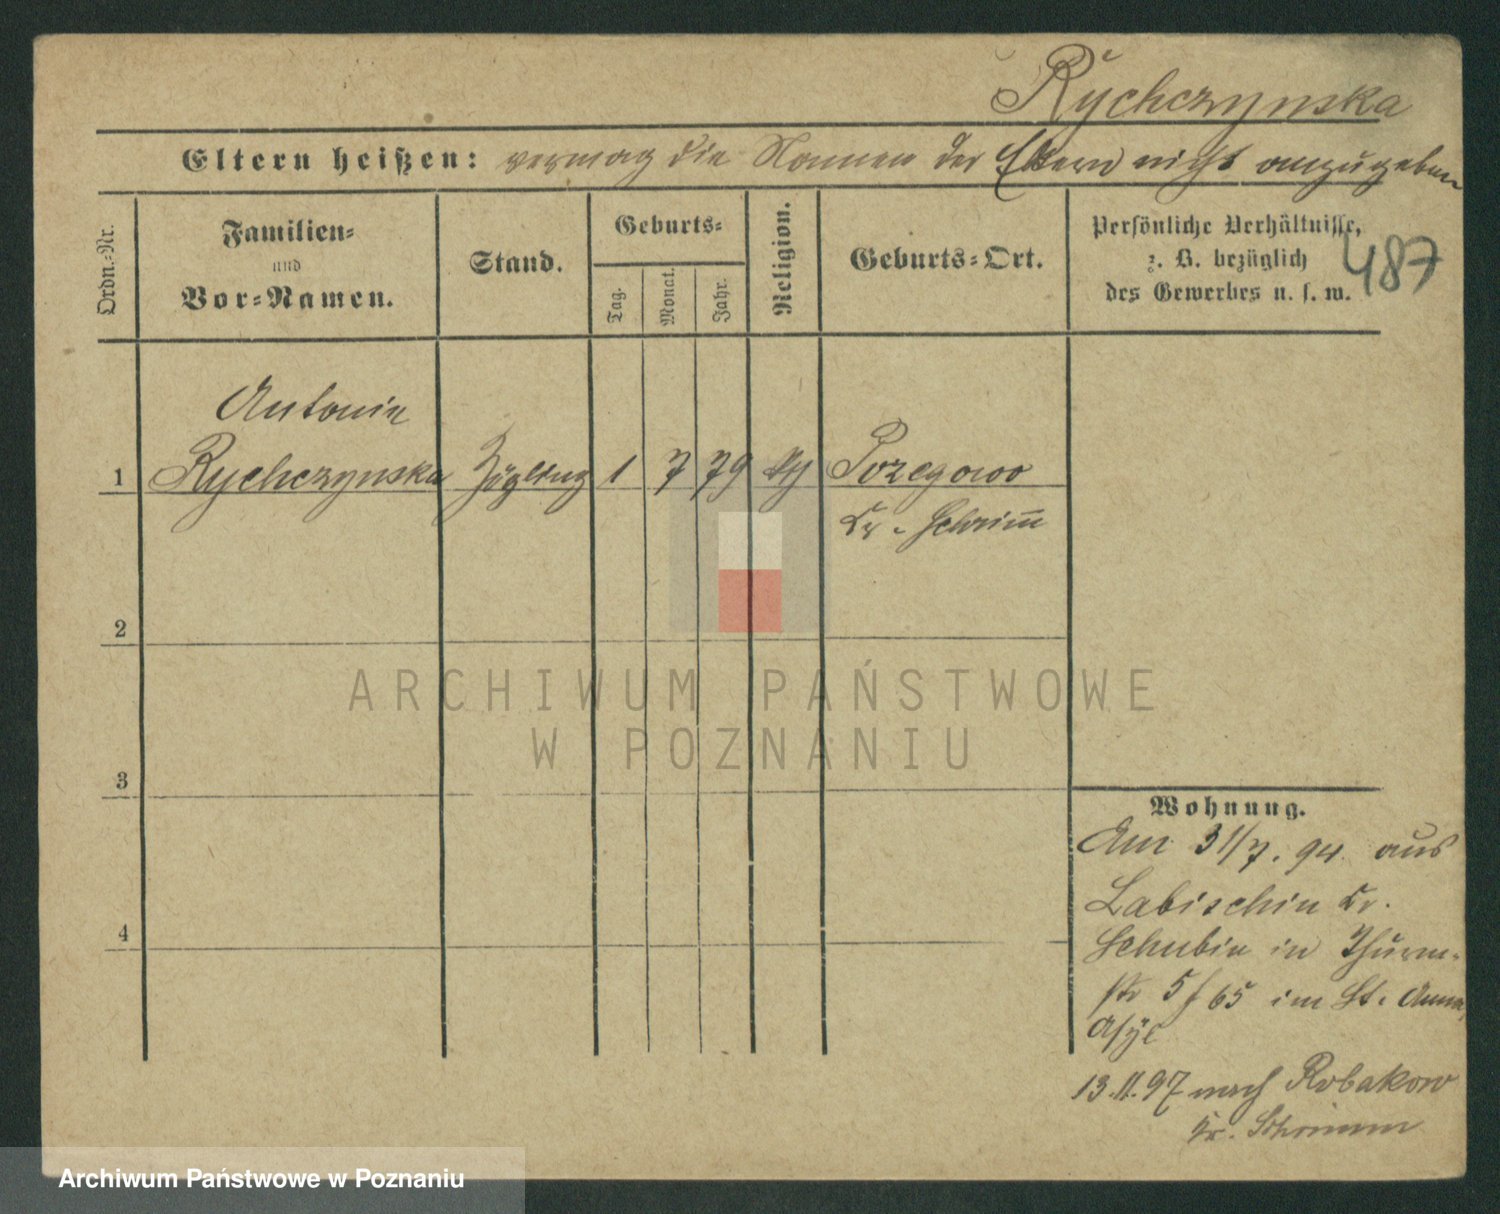 Rychczynska
Eltern heißen: vermag die Namen der Eltern nicht anzugeben
Ordn.-Nr.
Familien-
und
Vor-Namen.
Stand.
Geburts-
Tag.
Monat.
Jahr.
Religion.
Geburts-Ort.
Persönliche Verhältnisse,
z. B. bezüglich
des Gewerbes u. s. w.
487
Antonie
1 Rychczynska Zögling 1 7 79 kth
Kr. Schrimm
2
3
4
Wohnung.
Am 31/7. 94. aus
Labischin Kr.
Schubin in Thurm-
str 5 f 65 im St. Anna
Asyl
13.11.97 nach Robakowo
Kr. Schrimm
ARCHIWUM PAŃSTWOWE
W POZNANIU
Archiwum Państwowe w Poznaniu